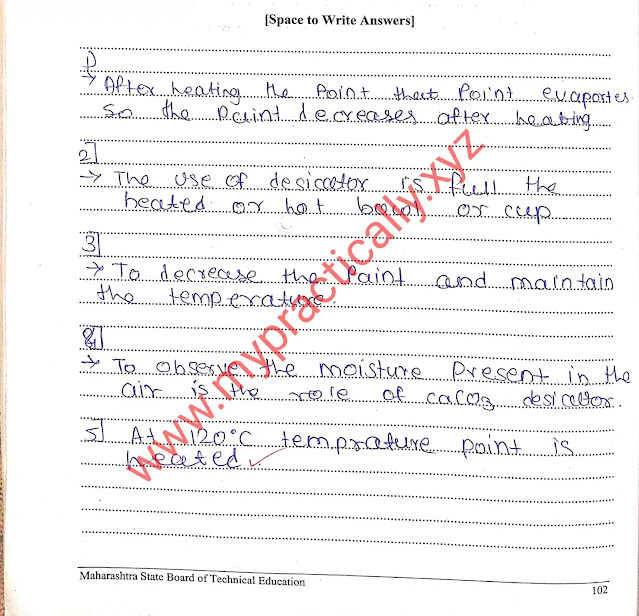 [Space to Write Answers]
1)
→ After heating the Point that Point evaportes
so the Paint decreases after heating
2]
→ The use of desicator is full the
heated or hot bowl or cup
3]
→ To decrease the Paint and maintain
the temperature
4]
→ To observe the moisture Present in the
air is the role of caco3 desicator.
5] At 120°C temprature point is
heated
www.mypractically.xyz
Maharashtra State Board of Technical Education
102